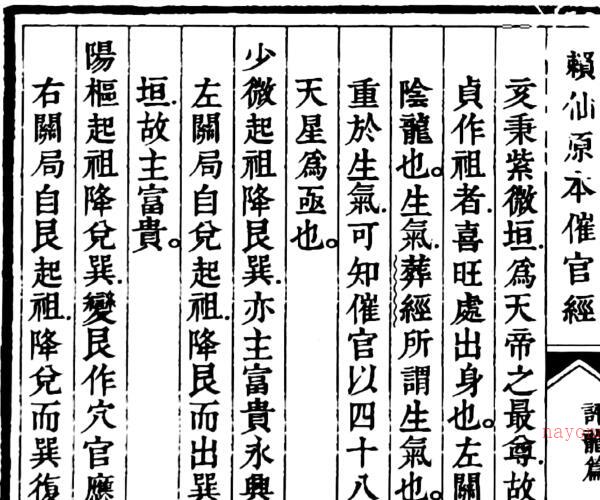 賴仙原本催官經
評龍篇
亥秉紫微垣.為天帝之最尊.故
貞作祖者.喜旺處出身也。左關
陰龍也。生氣.葬經所謂生氣也。
重於生氣.可知催官以四十八
天星為亟也。
少微起祖降艮巽.亦主富貴永興
左關局自兌起祖.降艮而出巽
垣.故主富貴。
陽樞起祖降兌巽.變艮作穴官應
右關局自艮起祖.降兌而巽復